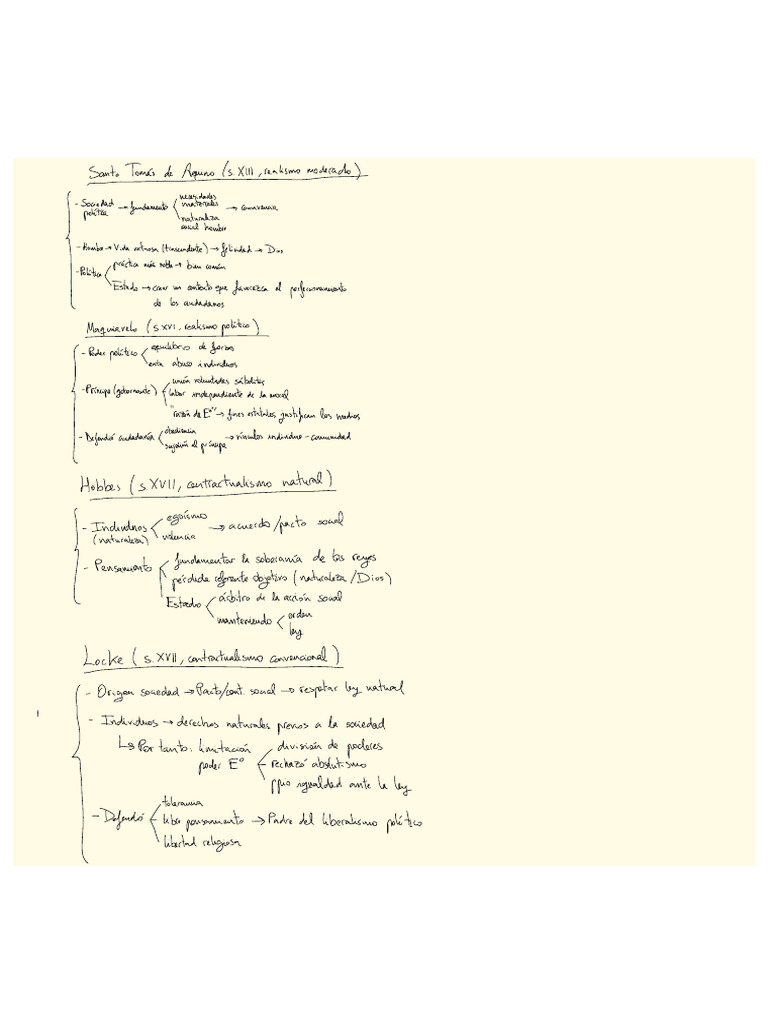 Santo Tomás de Aquino (s. XIII, realismo moderado)
- Sociedad política → fundamento < necesidades materiales / naturaleza social hombre → convivencia
- Hombre → Vida virtuosa (trascendente) → felicidad → Dios
- Política < práctica más noble → bien común
Estado → crear un contexto que favorezca el perfeccionamiento
de los ciudadanos
Maquiavelo (s. XVI, realismo político)
- Poder político < equilibrio de fuerzas
evita abuso individuos
- Príncipe (gobernante) < unión voluntades súbditos
labor independiente de la moral
"razón de Eº" → fines estatales justifican los medios
- Defendió ciudadanía < obediencia / sujeción al príncipe → vínculos individuo - comunidad
Hobbes (s. XVII, contractualismo natural)
- Individuos (naturaleza) < egoísmo / violencia → acuerdo / pacto social
- Pensamiento < fundamentar la soberanía de los reyes
pérdida referente objetivo (naturaleza / Dios)
Estado < árbitro de la acción social
manteniendo < orden
ley
Locke (s. XVII, contractualismo convencional)
- Origen sociedad → Pacto/cont. social → respetar ley natural
- Individuos → derechos naturales previos a la sociedad
↳ Por tanto: limitación poder Eº < división de poderes
rechazó absolutismo
ppio igualdad ante la ley
- Defendió < tolerancia
libre pensamiento → Padre del liberalismo político
libertad religiosa